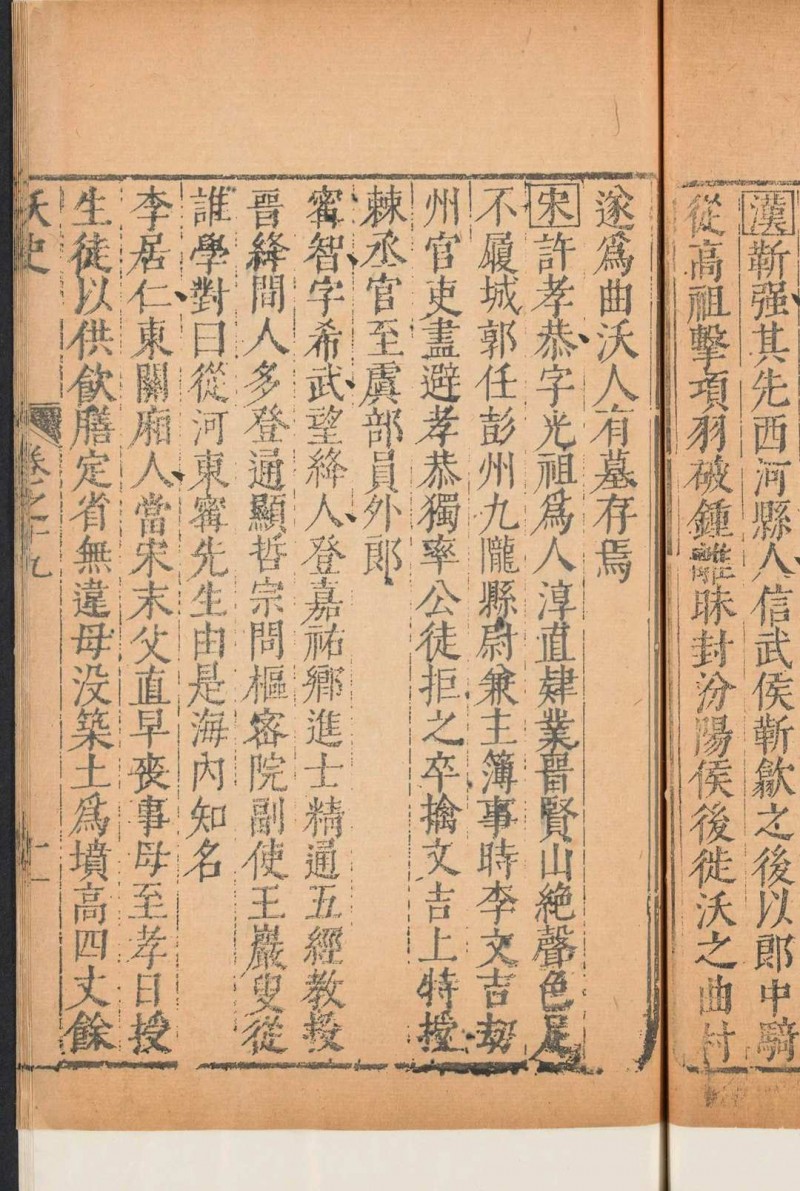 漢靳强其先西河縣人信武侯靳歙之後以郎中騎
從高祖擊項羽破鍾離昧封汾陽侯後徙沃之曲村
遂爲曲沃人有墓存焉
宋許孝恭字光祖爲人淳直肄業晋賢山絶聲色足
不履城郭任彭州九隴縣尉兼主簿事時李文吉刼
州官吏盡避孝恭獨率公徒拒之卒擒文吉上特授
棘丞官至虞部員外郎
甯智字希武望絳人登嘉祐鄉進士精通五經教授
晋絳間人多登通顯哲宗問樞密院副使王巖叟從
誰學對曰從河東甯先生由是海内知名
李居仁東關廂人當宋末父直早喪事母至孝日授
生徒以供飲膳定省無違母没築土爲墳高四丈餘
沃史 卷之十九 十一